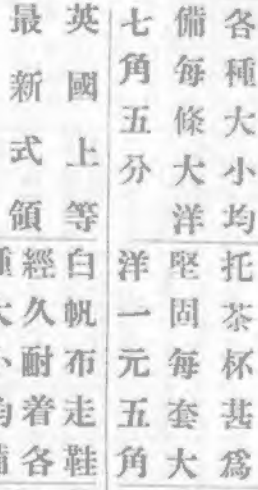 各種大小均
備每條大洋
七角五分
英國上等
最新式領
托茶杯甚爲
堅固每套大
洋一元五角
白帆布走鞋
經久耐着各
種大小均備